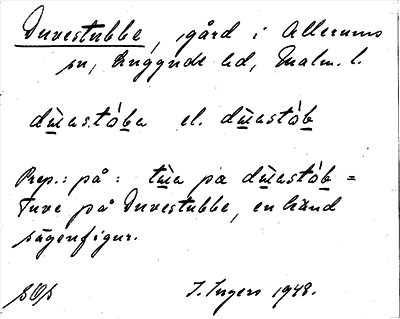 Duvestubbe, gård i Allerums
sn, Luggude hd, Malm. l.
dùastȯ́ba el. dùastȯ́b
Prep.: på: tùa pa dùastȯ́b =
Tuve på Duvestubbe, en känd
sägenfigur.
I. Ingers 1948.